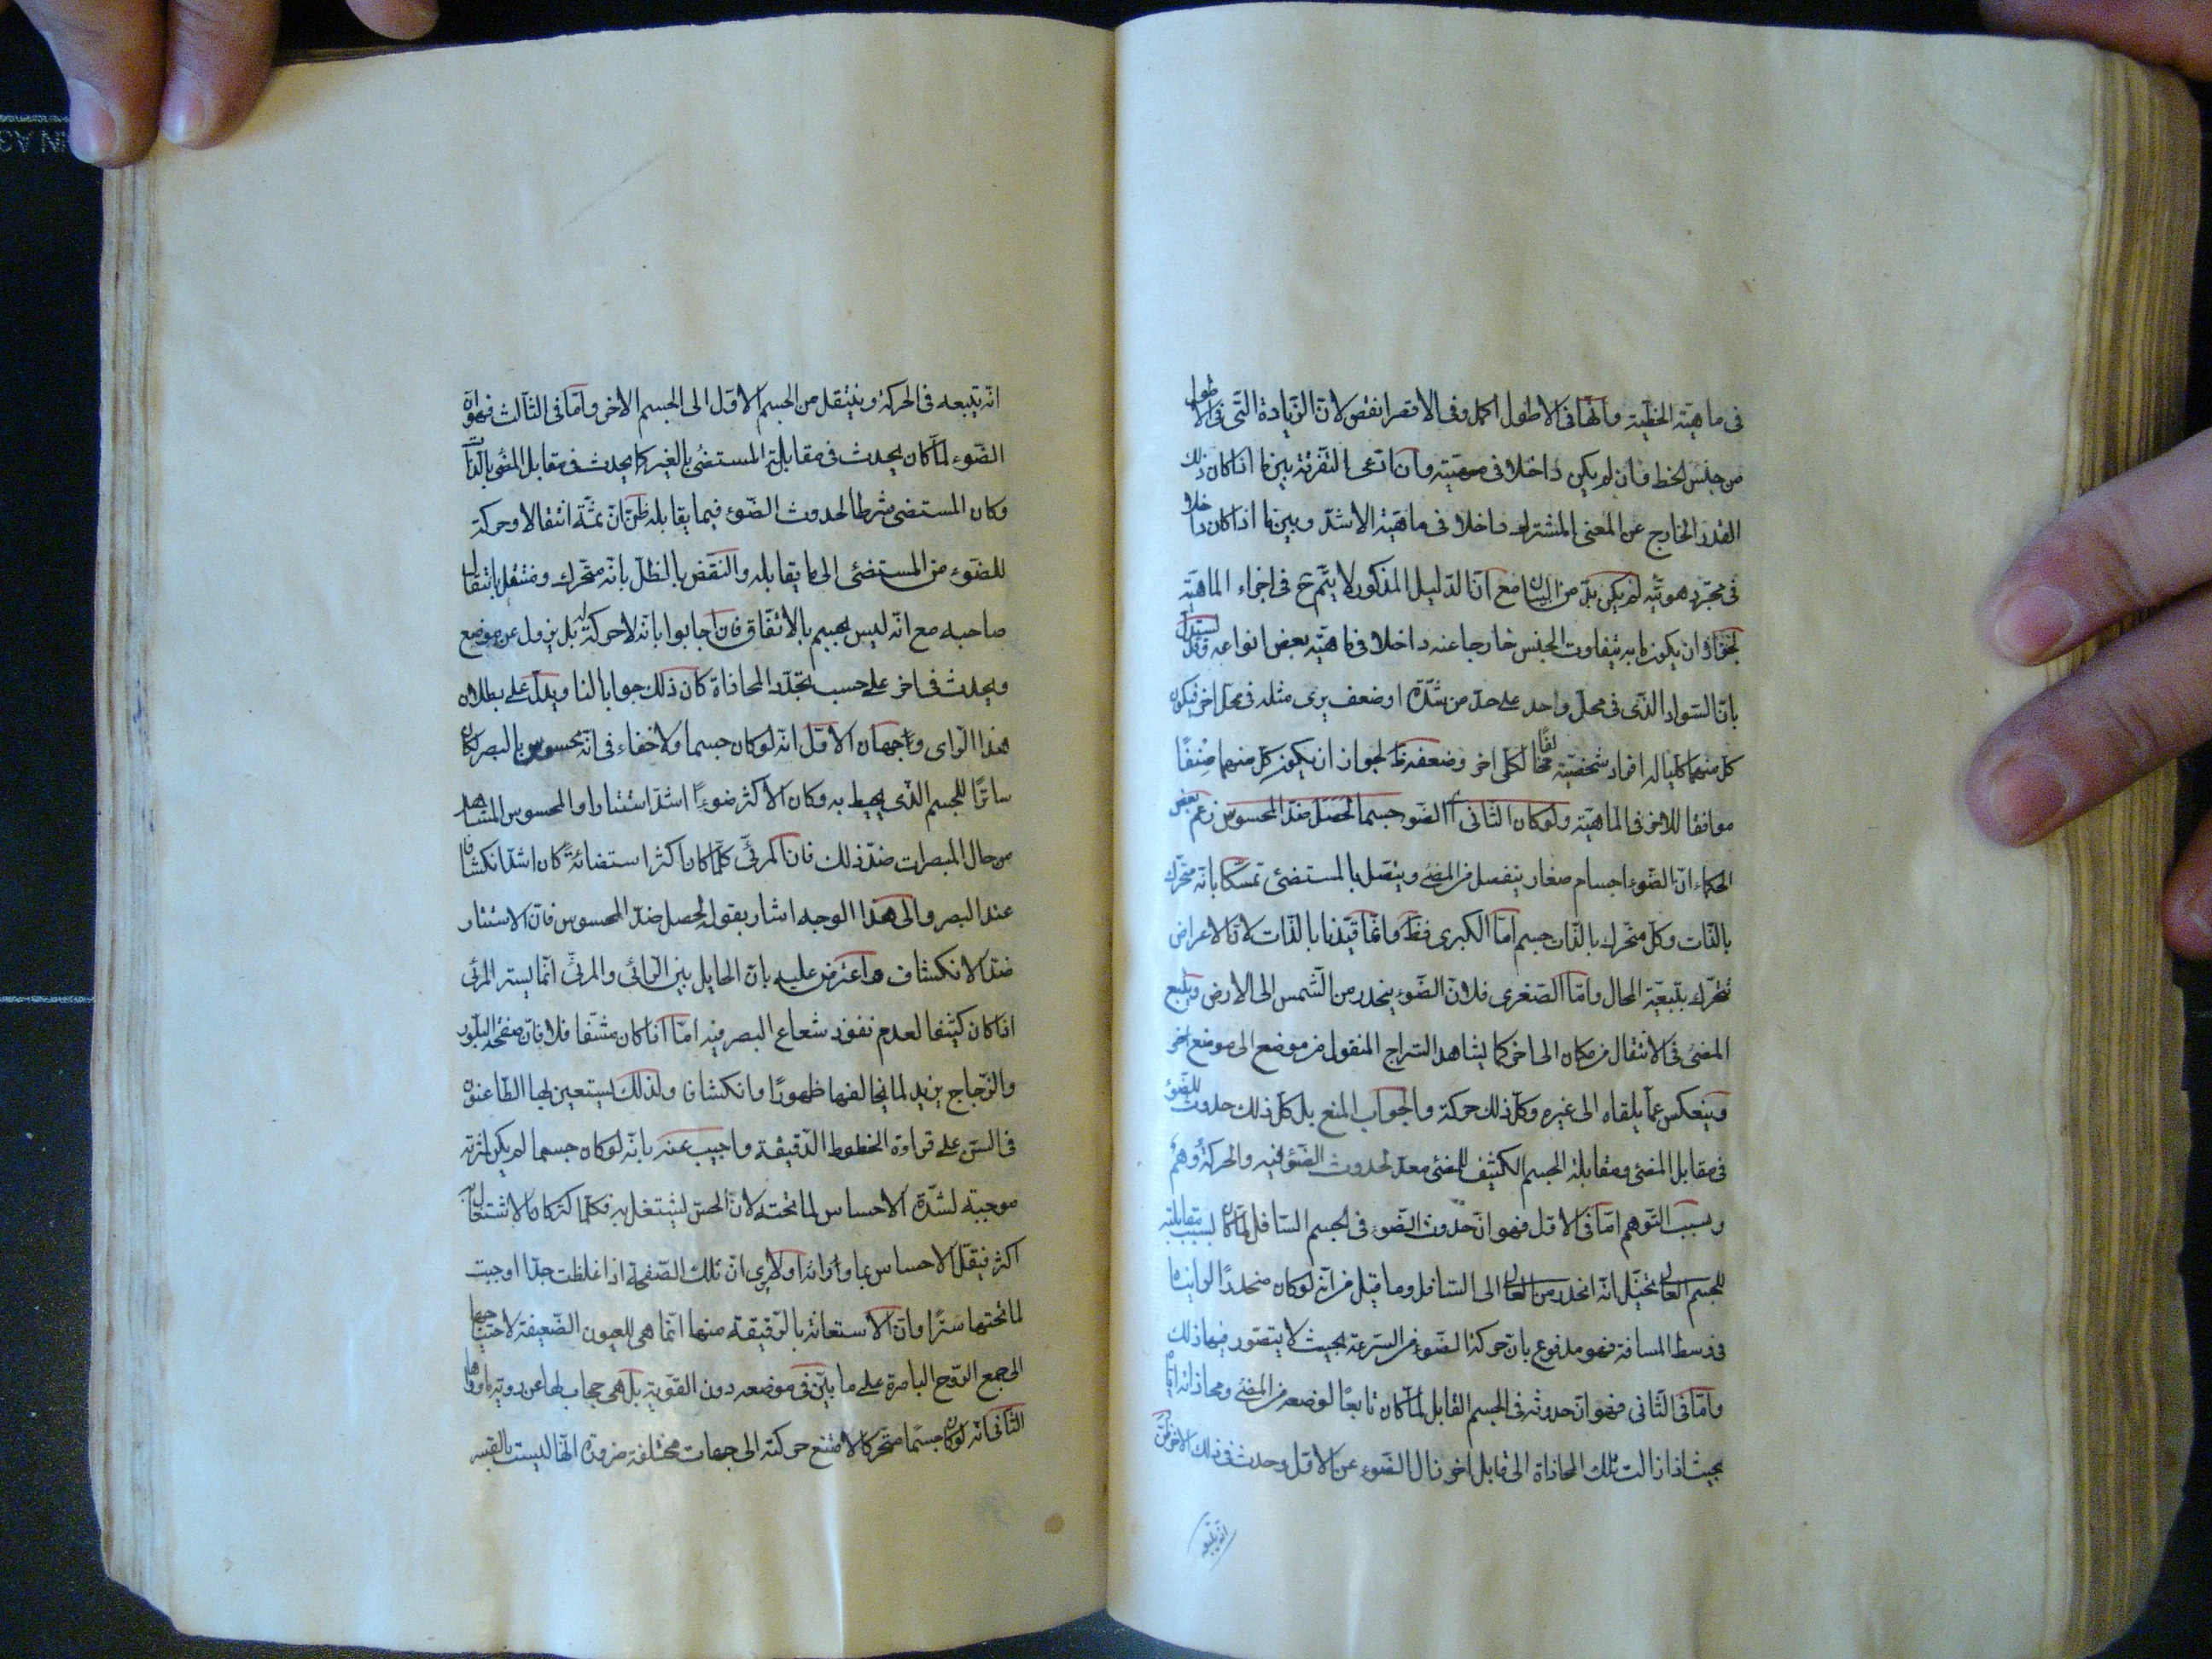 فى ماهيّة الخطّية وانّها فى الاطول اكمل وفى الاقصر انقص لانّ الزّيادة الّتى فى الاطول
من جنس الخط فان لم يكن داخلا فى مهيّته وان ادّعى التفرقة بينما اذا كان ذلك
القدر الخارج عن المعنى المشترك داخلا فى ماهيّة الاشدّ وبينما اذا كان داخلا
فى مجرّد هويّته لم يكن بدّ من البيان مع انّ الدّليل المذكور لا يتّم ح فى اجزاء الماهيّة
لجواز ان يكون ما به يتفاوت الجنس خارجا عنه داخلا فى ماهيّة بعض انواعه وقد يستدلّ
بانّ السّواد الذّى فى محلّ واحد على حدّ من شدّة او ضعف يرى مثله فى محلّ اخر فيكون
كلّ منهما كليّا له افراد شخصيّة مخالفا لكلّى اخر وضعفه ظ لجواز ان يكون كلّ منهما صنفًا
موافقا للاخر فى الماهيّة ولو كان الثّانى اى الضّوء جسما لحصل ضدّ المحسوس زعم بعض
الحكماء انّ الضّوء اجسام صغار ينفصل من المضئ ويتّصل بالمستضئ تمسّكا بانّه متحرّك
بالذّات وكلّ متحّرك بالذّات جسم امّا الكبرى فظ وانّما قيّدنا بالذّات لانّ الاعراض
تتحّرك بتبعيّة المحال وامّا الصّغرى فلانّ الضّوء ينحدر من الشّمس الى الارض ويتبع
المضئ فى الانتقال من مكان الى اخر كما يشاهد السّراج المنقول من موضع الى موضع اخر
وينعكس عمّا يلقاه الى غيره وكلّ ذلك حركة والجواب المنع بل كلّ ذلك حدوث للضّوء
فى مقابل المضئ ومقابلة الجسم الكثيف للمضئ معدّ لحدوث الضّوء فيه والحركة وهم
وسبب التّوهم امّا فى الاوّل فهو انّ حدوث الضّوء فى الجسم السّافل لمّا كان بسبب مقابلته
للجسم العالى تخيّل انّه انحدر من العالى الى السّافل وما قيل من انّه لو كان منحدرًا لرايناه
فى وسط المسافة فهو مدفوع بانّ حركة الضّوء من السّرعة بحيث لا يتصّور فيها ذلك
وامّا فى الثّانى فهو انّ حدوثه فى الجسم القابل لمّا كان تابعًا لوضعه من المضئ ومحاذاته ايّاه
بحيث اذا زالت تلك المحاذاة الى قابل اخر زال الضّوء عن الاوّل وحدث فى ذلك الاخر ظنّ
انّه يتبعه
انّه يتبعه فى الحركة وينتقل من الجسم الاوّل الى الجسم الاخر وامّا فى الثّالث فهو انّ
الضّوء لمّا كان يحدث فى مقابلة المستضئ بالغير كما يحدث فى مقابل المضئ بالذّات
وكان المستضئ شرطا لحدوث الضّوء فيما يقابله ظنّ انّ ثمّة انتقالا وحركة
للضّوء من المستضئ الى ما يقابله والنّقض بالظلّ بانّه متحّرك ومنتقل بانتقال
صاحبه مع انّه ليس بجسم بالاتّفاق فان اجابوا بانّه لا حركة له بل يزول عن موضع
ويحدث فى اخر على حسب تجدّد المحاذاة كان ذلك جوابا لنا ويدلّ على بطلان
هذا الرّاى وجهان الاوّل انّه لو كان جسما ولا خفاء فى انّه محسوس بالبصر لكان
ساترًا للجسم الذّى يحيط به وكان الاكثر ضوءًا اشدّ استتارا والمحسوس المشاهد
من حال المبصرات ضدّ ذلك فان المرئىّ كلّما كان اكثر استضائةً كان اشدّ انكشافا
عند البصر والى هذا الوجه اشار بقوله لحصل ضدّ المحسوس فانّ الاستتار
ضدّ الانكشاف واعترض عليه بانّ الحايل بين الرّائى والمرئىّ انّما يستر المرئى
اذا كان كثيفا لعدم نفوذ شعاع البصر فيه امّا اذا كان مشّفا فلا فانّ صفحة البلّور
والزّجاج يزيد لما خالفها ظهورًا وانكشافا ولذلك يستعين بها الطّاعنون
فى السنّ على قراءة الخطوط الدّقيقة واجيب عنه بانّه لو كان جسما لم يكن كثرته
موجبة لشدّة الاحساس لما تحته لانّ الحسّ يشتغل به فكلّما كثر كان الاشتغال
اكثر فيقلّ الاحساس بما ورائه اولا يرى انّ تلك الصّفحة اذا غلظت جدّا اوجبت
لما تحتها سترًا وانّ الاستعانة بالرّقيقة منها انّما هى للعيون الضّعيفة لاحتياجها
الى جمع الرّوح الباصرة على ما بيّن فى موضعه دون القوّية بل هى حجاب لها عن رؤية ما ورائها
الثّانى انّه لو كان جسما متحّركا لامتنع حركته الى جهات مختلفة ضرورة انّها ليست بالقسر